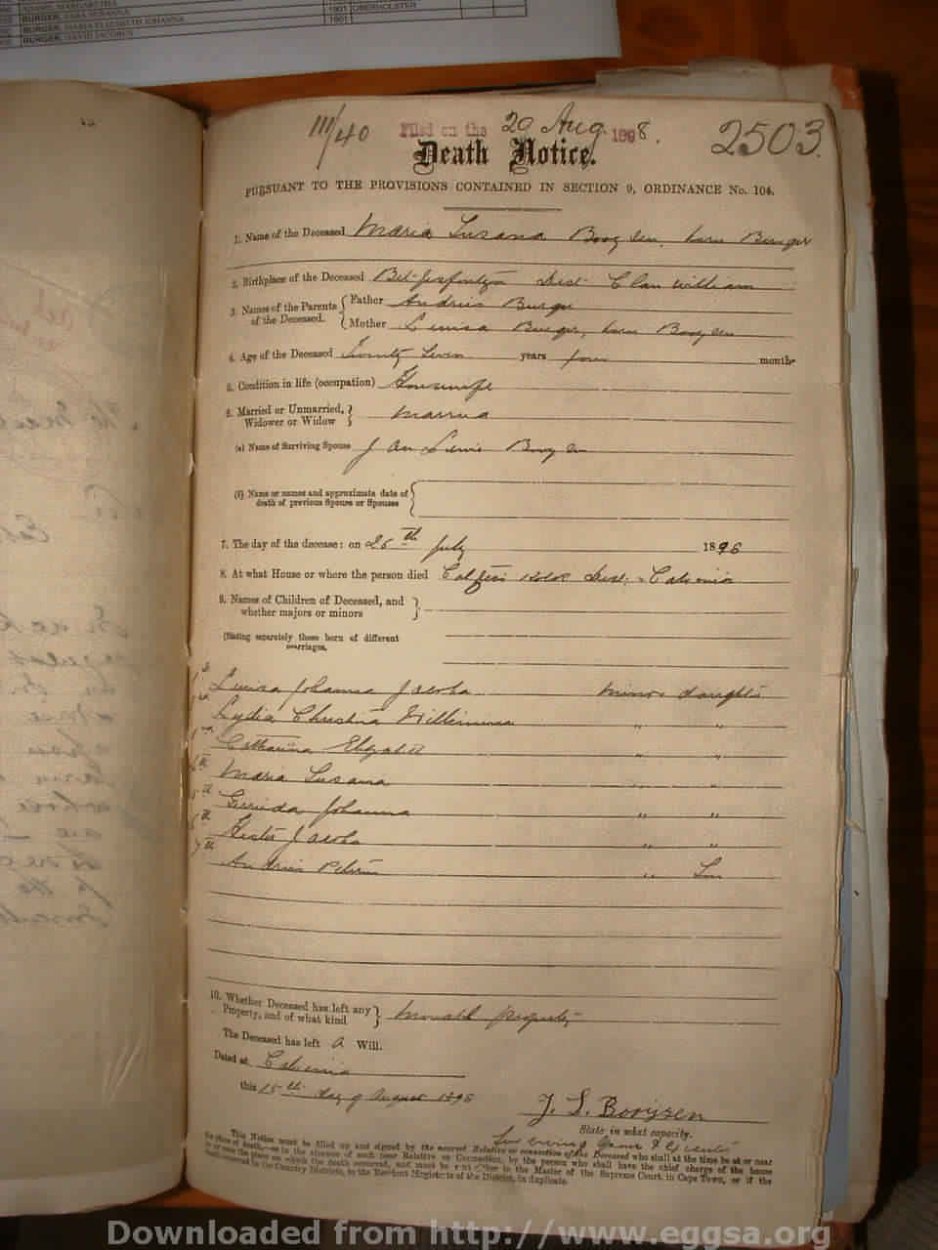 BURGER, MARIA ELIZABETH JOHANNA
BURGER, DAVID JACOBUS
1901
1901
111/40 Filed on the 29 Aug 1898.
2503
Death Notice.
PURSUANT TO THE PROVISIONS CONTAINED IN SECTION 9, ORDINANCE No. 104.
1. Name of the Deceased Maria Susana Booysen, born Burger
2. Birthplace of the Deceased Dist Clanwilliam
3. Names of the Parents of the Deceased. Father Andries Burger
Mother Louisa Burger, born Booysen
4. Age of the Deceased years four months
5. Condition in life (occupation) Housewife
6. Married or Unmarried, Widower or Widow Married
(a) Name of Surviving Spouse Jan Booysen
(b) Name or names and approximate date of
death of previous Spouse or Spouses
7. The day of the decease: on 25th July 1898
8. At what House or where the person died Dist: Calvinia
9. Names of Children of Deceased, and
whether majors or minors
(Stating separately those born of different
marriages.
Louisa Johanna Jacoba minor daughter
Lydia Christina Willemina " "
Catharina Elizabeth " "
Maria Susana " "
Johanna " "
Hester Jacoba " "
Andries Petrus " Son
10. Whether Deceased has left any
Property, and of what kind Movable property
The Deceased has left a Will.
Dated at Calvinia
this 15th day of August 1898
J. S. Booysen
State in what capacity.
Surviving
This Notice must be filled up and signed by the nearest Relative or connection of the Deceased who shall at the time be at or near
the place of death,—or in the absence of such near Relative or Connection, by the person who shall have the chief charge of the house
in or near the place on which the death occurred, and must be sent either to the Master of the Supreme Court in Cape Town, or if the
death occurred in the Country Districts, to the Resident Magistrate of the District, in duplicate.
Downloaded from http://www.eggsa.org